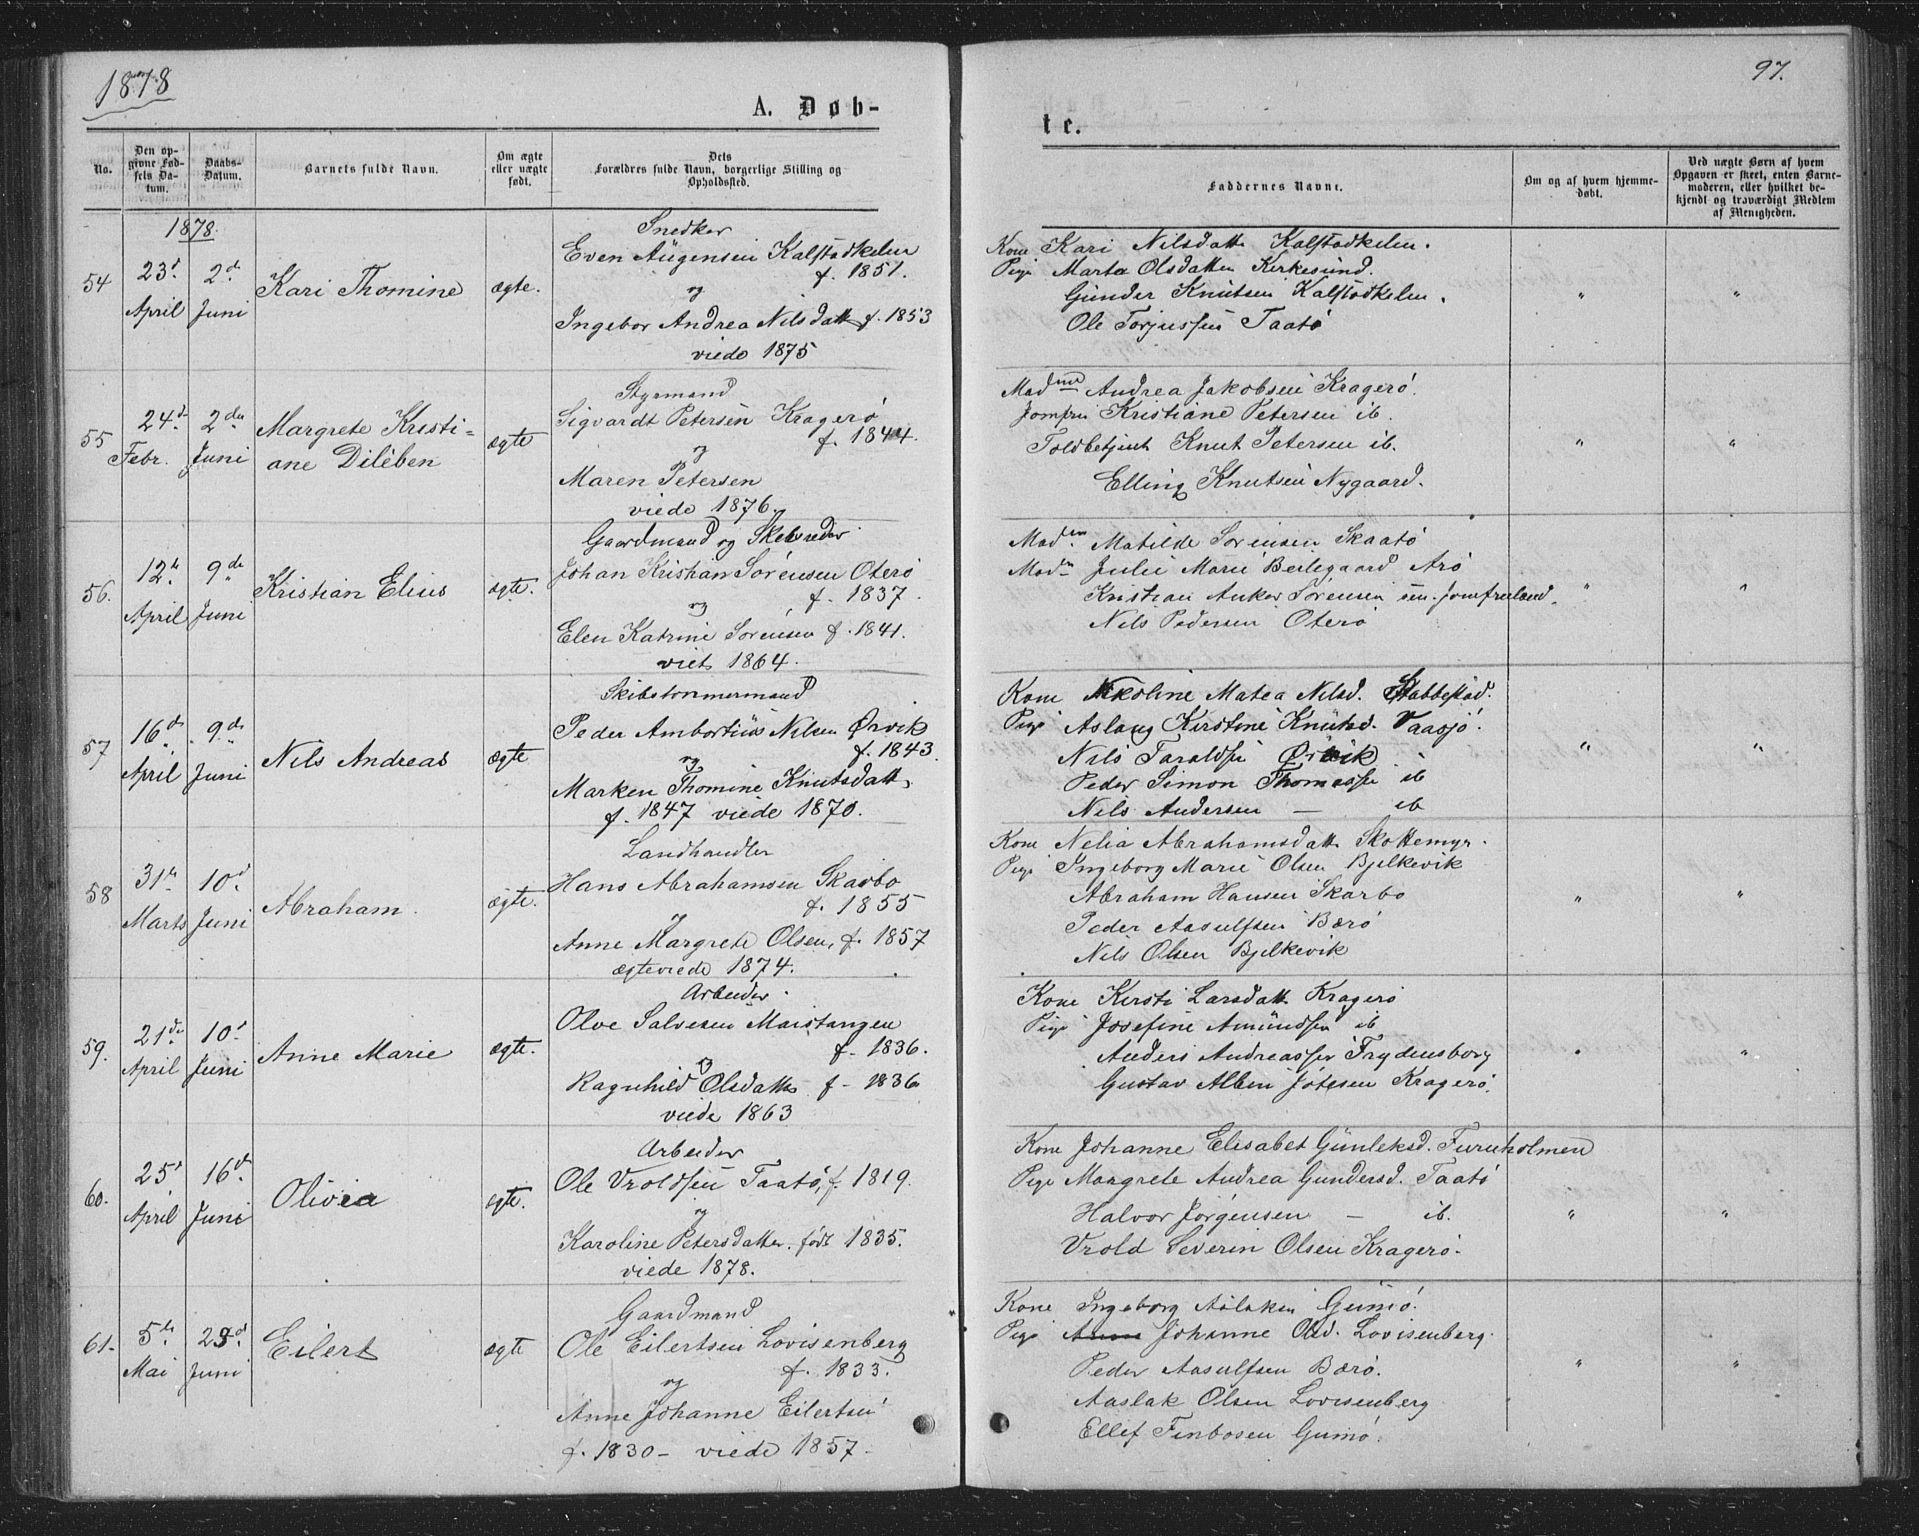 1878
A. Døb-
No.
Den op-
givne Fød-
sels Da-
tum.
Daabs-
Datum.
Barnets fulde Navn.
Om ægte
eller uægte
født.
Dets
Forældres fulde Navn, borgerlige Stilling og
Opholdssted.
1878.
54
23d
April
2d
Juni
Kari Thomine
ægte.
Snedker
Even Augensen Kalstadkelen
f. 1851.
og
Ingebor Andrea Nilsdatt f. 1853
viede 1875
55
24d
Febr.
2den
Juni
Margrete Kristi=
ane Dileben
ægte
Styrmand
Sigvardt Petersen Kragerø
f. 1844.
og
Maren Petersen
viede 1876.
56.
12te
April
9de
Juni
Kristian Elius
ægte.
Gaardmand og Skibsreder
Johan Kristian Sørensen Oterø
f. 1837.
og
Elen Katrine Sørensen f. 1841.
viets 1864.
57
16de
April
9de
Juni
Nils Andreas
ægte
Skibstømmermand
Peder Ambortius Nilsen Ørvik
f. 1843.
og
Marken Thomine Knutsdatt.
f. 1847 viede 1870.
58
31te
Marts
10d
Juni
Abraham.
ægte.
Landhandler
Hans Abrahamsen Skarbo
f. 1855
og
Anne Margrete Olsen, f. 1857
ægteviede 1874.
59.
21de
April
10d
Juni
Anne Marie
ægte.
Arbeider.
Olve Salvesen Maistangen
f. 1836.
og
Ragnhild Olsdatter f. 1836
viede 1863
60.
25d
April
16d
Juni
Olivia
ægte.
Arbeider
Ole Vroldsen Taatø, f. 1819.
og
Karoline Petersdatter. født 1835.
viede 1878.
61.
5te
Mai
23d
Juni
Eilert
ægte
Gaardmand
Ole Eilertsen Lovisenberg
f. 1833.
og
Anne Johanne Eilertsen
f. 1830 - viede 1857.
97.
te.
Faddernes Navne.
Om og af hvem hjemme-
døbt.
Ved uægte Børn af hvem
Opgaven er skeet, enten Barne-
moderen, eller hvilket be-
kjendt og troværdigt Medlem
af Menigheden.
Kone Kari Nilsdatte Kalstadkelen.
Pige Marta Olsdatten Kirkesund.
Gunder Knutsen Kalstadkelen.
Ole Torjussen Taatø
" "
Madme Andrea Jakobsen Kragerø.
Jomfru Kristiane Petersen ib.
Toldbetjent Knut Petersen ib.
Elling Knutsen Nygaard.
" "
Madm Matilde Sørensen Skaatø
Madm Julie Marie Beilegaard Arø
Kristian Anker Sørensen sen. Jomfruland.
Nils Pedersen Oterø
" "
Kone Nikoline Matea Nilsd. Stabbestad.
Pige Aslaug Kirstine Knutsd. Vaasjø.
Nils Taraldsen Ørvik
Peder Simon Thomassen ib
Nils Andersen — ib
" "
Kone Nelia Abrahamsdatt. Skottemyr.
Pige Ingeborg Marie Olsen Bjelkevik
Abraham Hansen Skarbo
Peder Aasulfsen Bærø
Nils Olsen Bjelkevik
" "
Kone Kirsti Larsdatt. Kragerø
Pige Josefine Amundsen ib
Anders Andreassen Frydensborg
Gustav Albin Kragerø.
" "
Kone Johanne Elisabet Gunleksd. Furuholmen
Pige Margrete Andrea Gundersd. Taatø
Halvor Jørgensen — ib.
Vrold Severin Olsen Kragerø.
" "
Kone Ingeborg Aslaksen Gumø.
Pige Anne Johanne Olsd. Lovisenberg.
Peder Aasulfsen Bærø.
Aaslak Olsen Lovisenberg
Ellef Finbosen Gumø.
" "